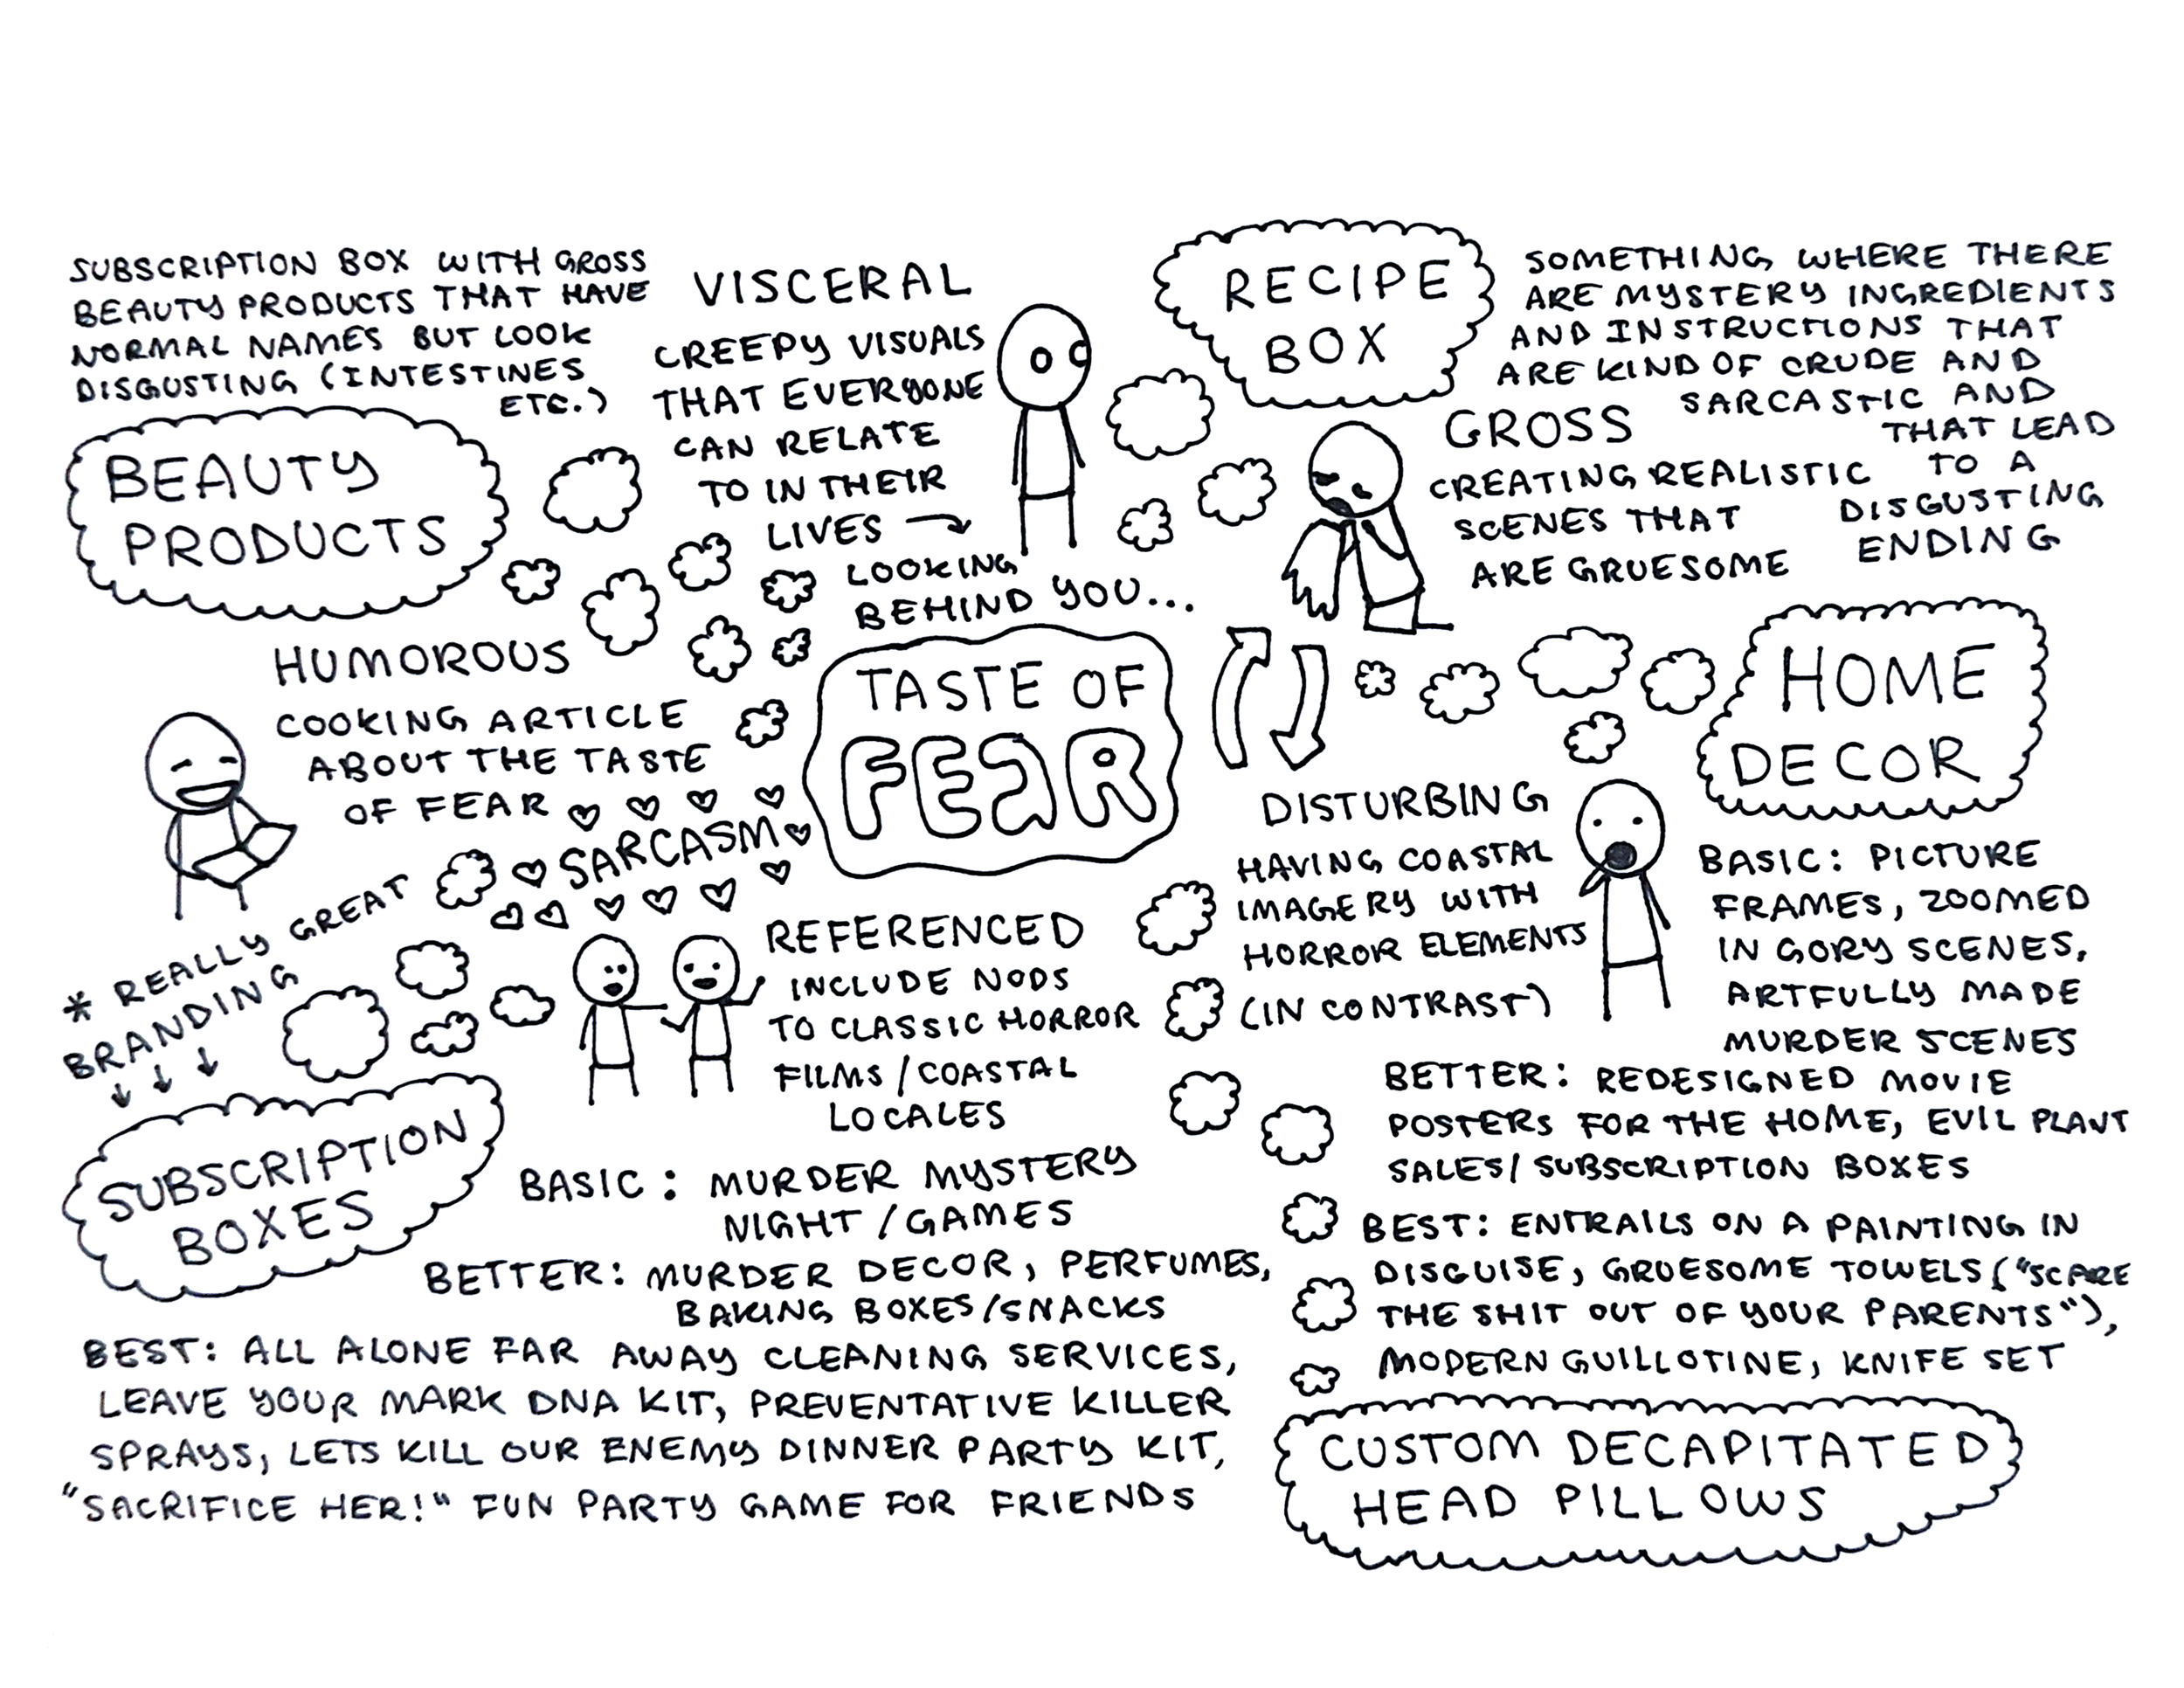 SUBSCRIPTION BOX WITH GROSS
BEAUTY PRODUCTS THAT HAVE
NORMAL NAMES BUT LOOK
DISGUSTING (INTESTINES
ETC.)
BEAUTY
PRODUCTS
VISCERAL
CREEPY VISUALS
THAT EVERYONE
CAN RELATE
TO IN THEIR
LIVES →
LOOKING
BEHIND YOU...
RECIPE
BOX
SOMETHING WHERE THERE
ARE MYSTERY INGREDIENTS
AND INSTRUCTIONS THAT
ARE KIND OF CRUDE AND
SARCASTIC AND
THAT LEAD
TO A
DISGUSTING
ENDING
GROSS
CREATING REALISTIC
SCENES THAT
ARE GRUESOME
HUMOROUS
COOKING ARTICLE
ABOUT THE TASTE
OF FEAR
SARCASM
TASTE OF
FEAR
HOME
DECOR
DISTURBING
HAVING COASTAL
IMAGERY WITH
HORROR ELEMENTS
(IN CONTRAST)
BASIC: PICTURE
FRAMES, ZOOMED
IN GORY SCENES,
ARTFULLY MADE
MURDER SCENES
BETTER: REDESIGNED MOVIE
POSTERS FOR THE HOME, EVIL PLANT
SALES/SUBSCRIPTION BOXES
BEST: ENTRAILS ON A PAINTING IN
DISGUISE, GRUESOME TOWELS ("SCARE
THE SHIT OUT OF YOUR PARENTS"),
MODERN GUILLOTINE, KNIFE SET
CUSTOM DECAPITATED
HEAD PILLOWS
REFERENCED
INCLUDE NODS
TO CLASSIC HORROR
FILMS/COASTAL
LOCALES
* REALLY GREAT
BRANDING
↓ ↓ ↓
SUBSCRIPTION
BOXES
BASIC: MURDER MYSTERY
NIGHT/GAMES
BETTER: MURDER DECOR, PERFUMES,
BAKING BOXES/SNACKS
BEST: ALL ALONE FAR AWAY CLEANING SERVICES,
LEAVE YOUR MARK DNA KIT, PREVENTATIVE KILLER
SPRAYS, LETS KILL OUR ENEMY DINNER PARTY KIT,
"SACRIFICE HER!" FUN PARTY GAME FOR FRIENDS